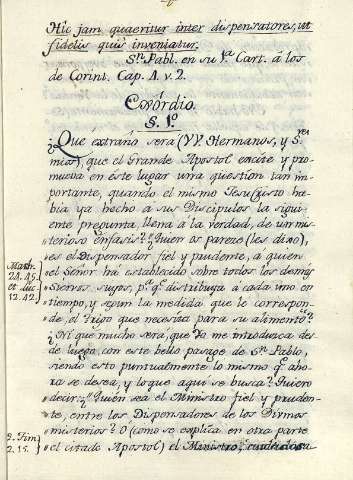 Hic jam quaeritur inter dispensatores, ut
fidelis quis inveniatur.
Sn. Pabl. en su 1ª Cart. á los
de Corint. Cap. 4. v. 2.
Exórdio.
§. 1º
¿Que extraño será (VV. Hermanos, y Sres
mios), que el Grande Apostol excite y pro-
mueva en este lugar una question tan im-
portante, quando el mismo Jesu Cristo ha-
bia ya hecho a sus Discipulos la sigui-
ente pregunta, llena á la verdad, de un mis-
terioso énfasis? ¿Quien os parece (les dixo),
es el Dispensador fiel y prudente, a quien
Math. 24. 45. et Luc. 12. 42.
el Señor há establecido sobre todos los demas
Siervos suyos, pª. qe. distribuya á cada uno en
tiempo, y segun la medida que le correspon-
de, el trigo que necesita para su alimento?
¿Ni qué mucho será, que Yo me introduzca des
de luego con este bello pasage de Sn. Pablo,
siendo esto puntualmente lo mismo qe. aho-
ra se desea, y lo que aqui se busca? Quiero
decir: ¿Quién sea el Ministro fiel y pruden-
te, entre los Dispensadores de los Divinos
misterios? O (como se explica en otra parte
2. Tim. 2. 15.
el citado Apostol) el Ministro, cuidadosa